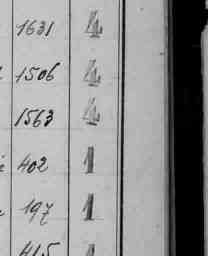 1631 4
1506 4
1563 4
402 1
197 1
415 1